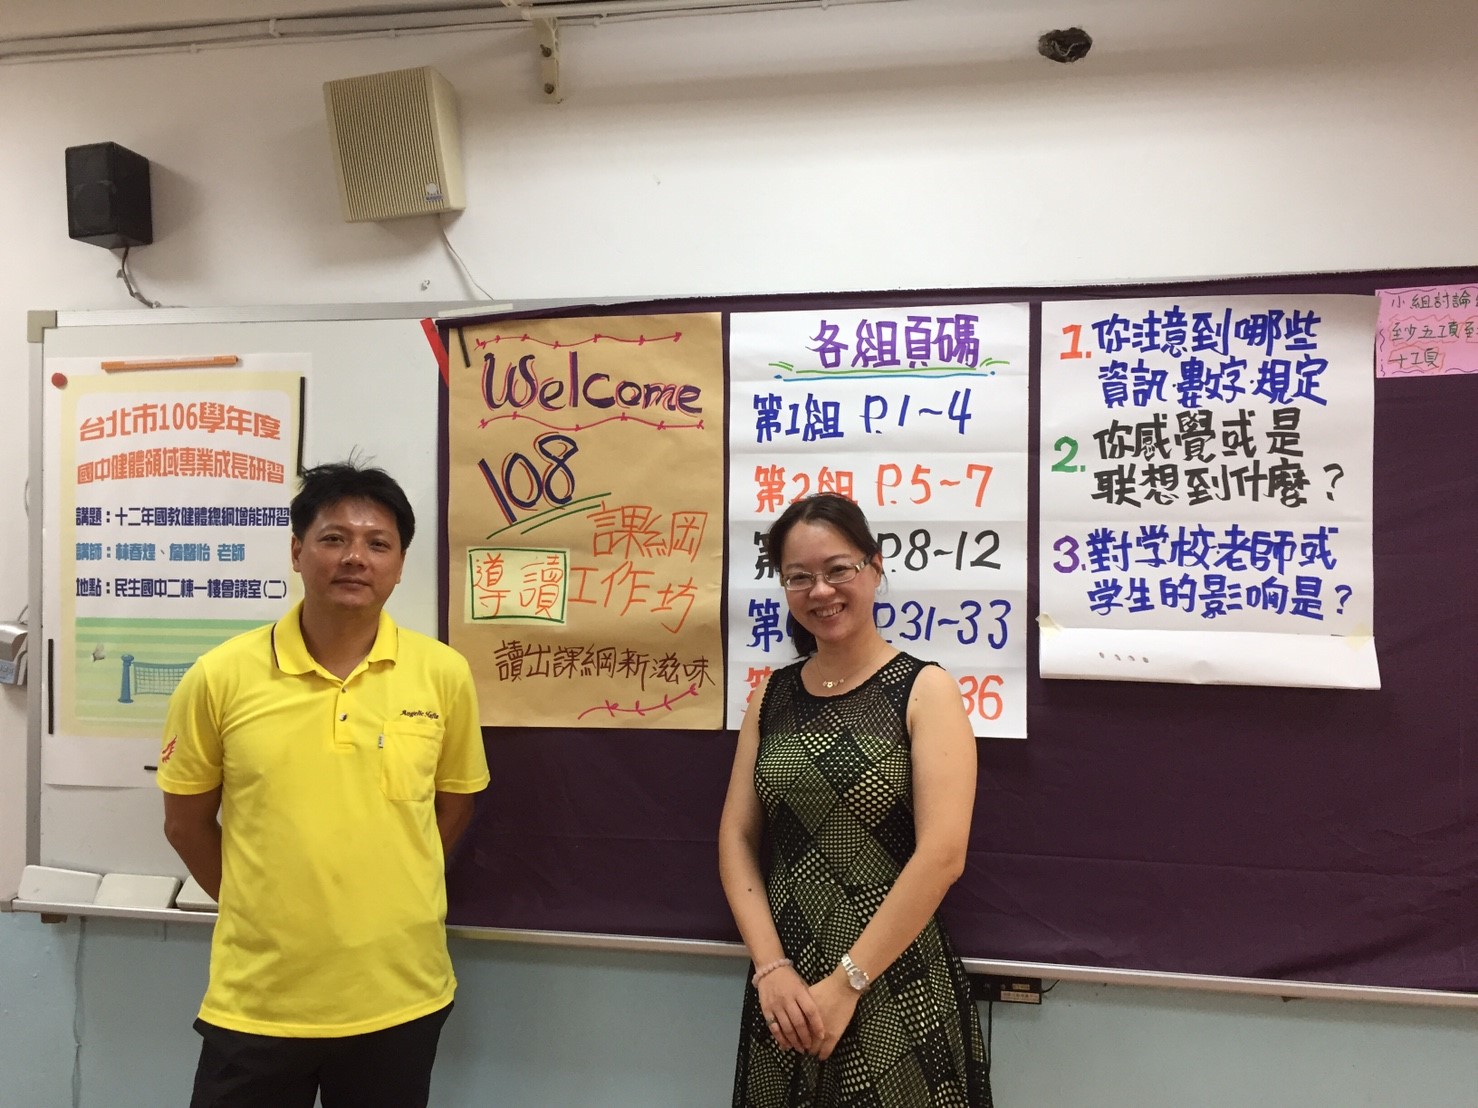 台北市106學年度
國中健體領域專業成長研習
講題：十二年國教健體總綱增能研習
講師：林春煌、詹醫怡 老師
地點：民生國中二棟一樓會議室(二)
Welcome
108
課綱
導讀 工作坊
讀出課綱新滋味
各組頁碼
第1組 P.1~4
第2組 P.5~7
第 P.8~12
第 P.31~33
36
1. 你注意到哪些
資訊、數字、規定
2. 你感覺或是
联想到什麼？
3. 對学校、老師或
学生的影响是？
小組討論
至少五項至
十項
Angelic Hefa